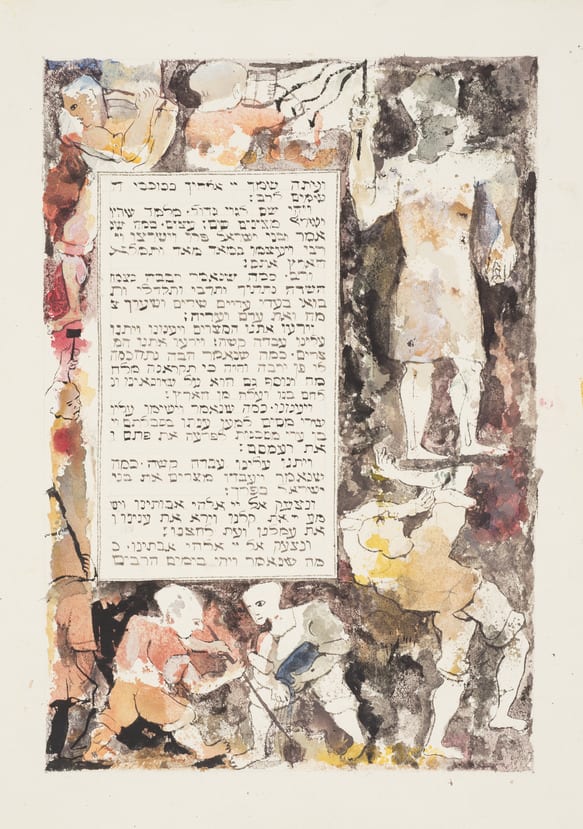 ועתה שמך יי אלהיך ככוכבי ה
שמים לרב:
ויהי שם לגוי גדול מלמד שהיו
ישראל מצוינים שם: עצום כמה שנ
אמר ובני ישראל פרו וישרצו וי
רבו ויעצמו במאד מאד ותמלא
הארץ אתם:
ורב כמה שנאמר רבבה כצמח
השדה נתתיך ותרבי ותגדלי ות
בואי בעדי עדיים שדים ושערך צ
מח ואת ערם ועריה:
וירעו אתנו המצרים ויענונו ויתנו
עלינו עבדה קשה: וירעו אתנו המ
צרים. כמה שנאמר הבה נתחכמה
לו פן ירבה והיה כי תקראנה מלח
מה ונוסף גם הוא על שונאינו ונ
לחם בנו ועלה מן הארץ:
ויענונו. כמה שנאמר וישימו עליו
שרי מסים למען ענתו בסבלתם וי
בן ערי מסכנות לפרעה את פתם ו
את רעמסס:
ויתנו עלינו עבדה קשה. כמה
שנאמר ויעבדו מצרים את בני
ישראל בפרך:
ונצעק אל יי אלהי אבותינו ויש
מע יי את קלנו וירא את ענינו ו
את עמלנו ואת לחצנו:
ונצעק אל יי אלהי אבתינו. כ
מה שנאמר ויהי בימים הרבים